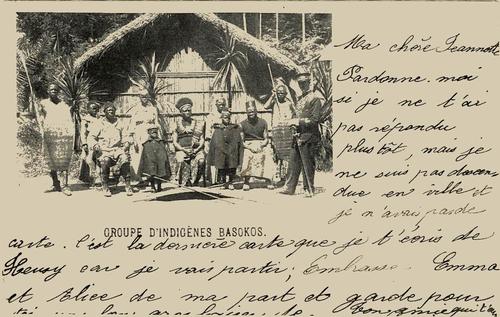 Ma chère Jeannette
Pardonne-moi
si je ne t'ai
pas répondu
plus tôt, mais je
ne suis pas descen-
due en ville et
je n'avais pas de
GROUPE D'INDIGÈNES BASOKOS.
carte. C'est la dernière carte que je t'écris de
Heusy car je vais partir. Embrasse Emma
et Alice de ma part et garde pour